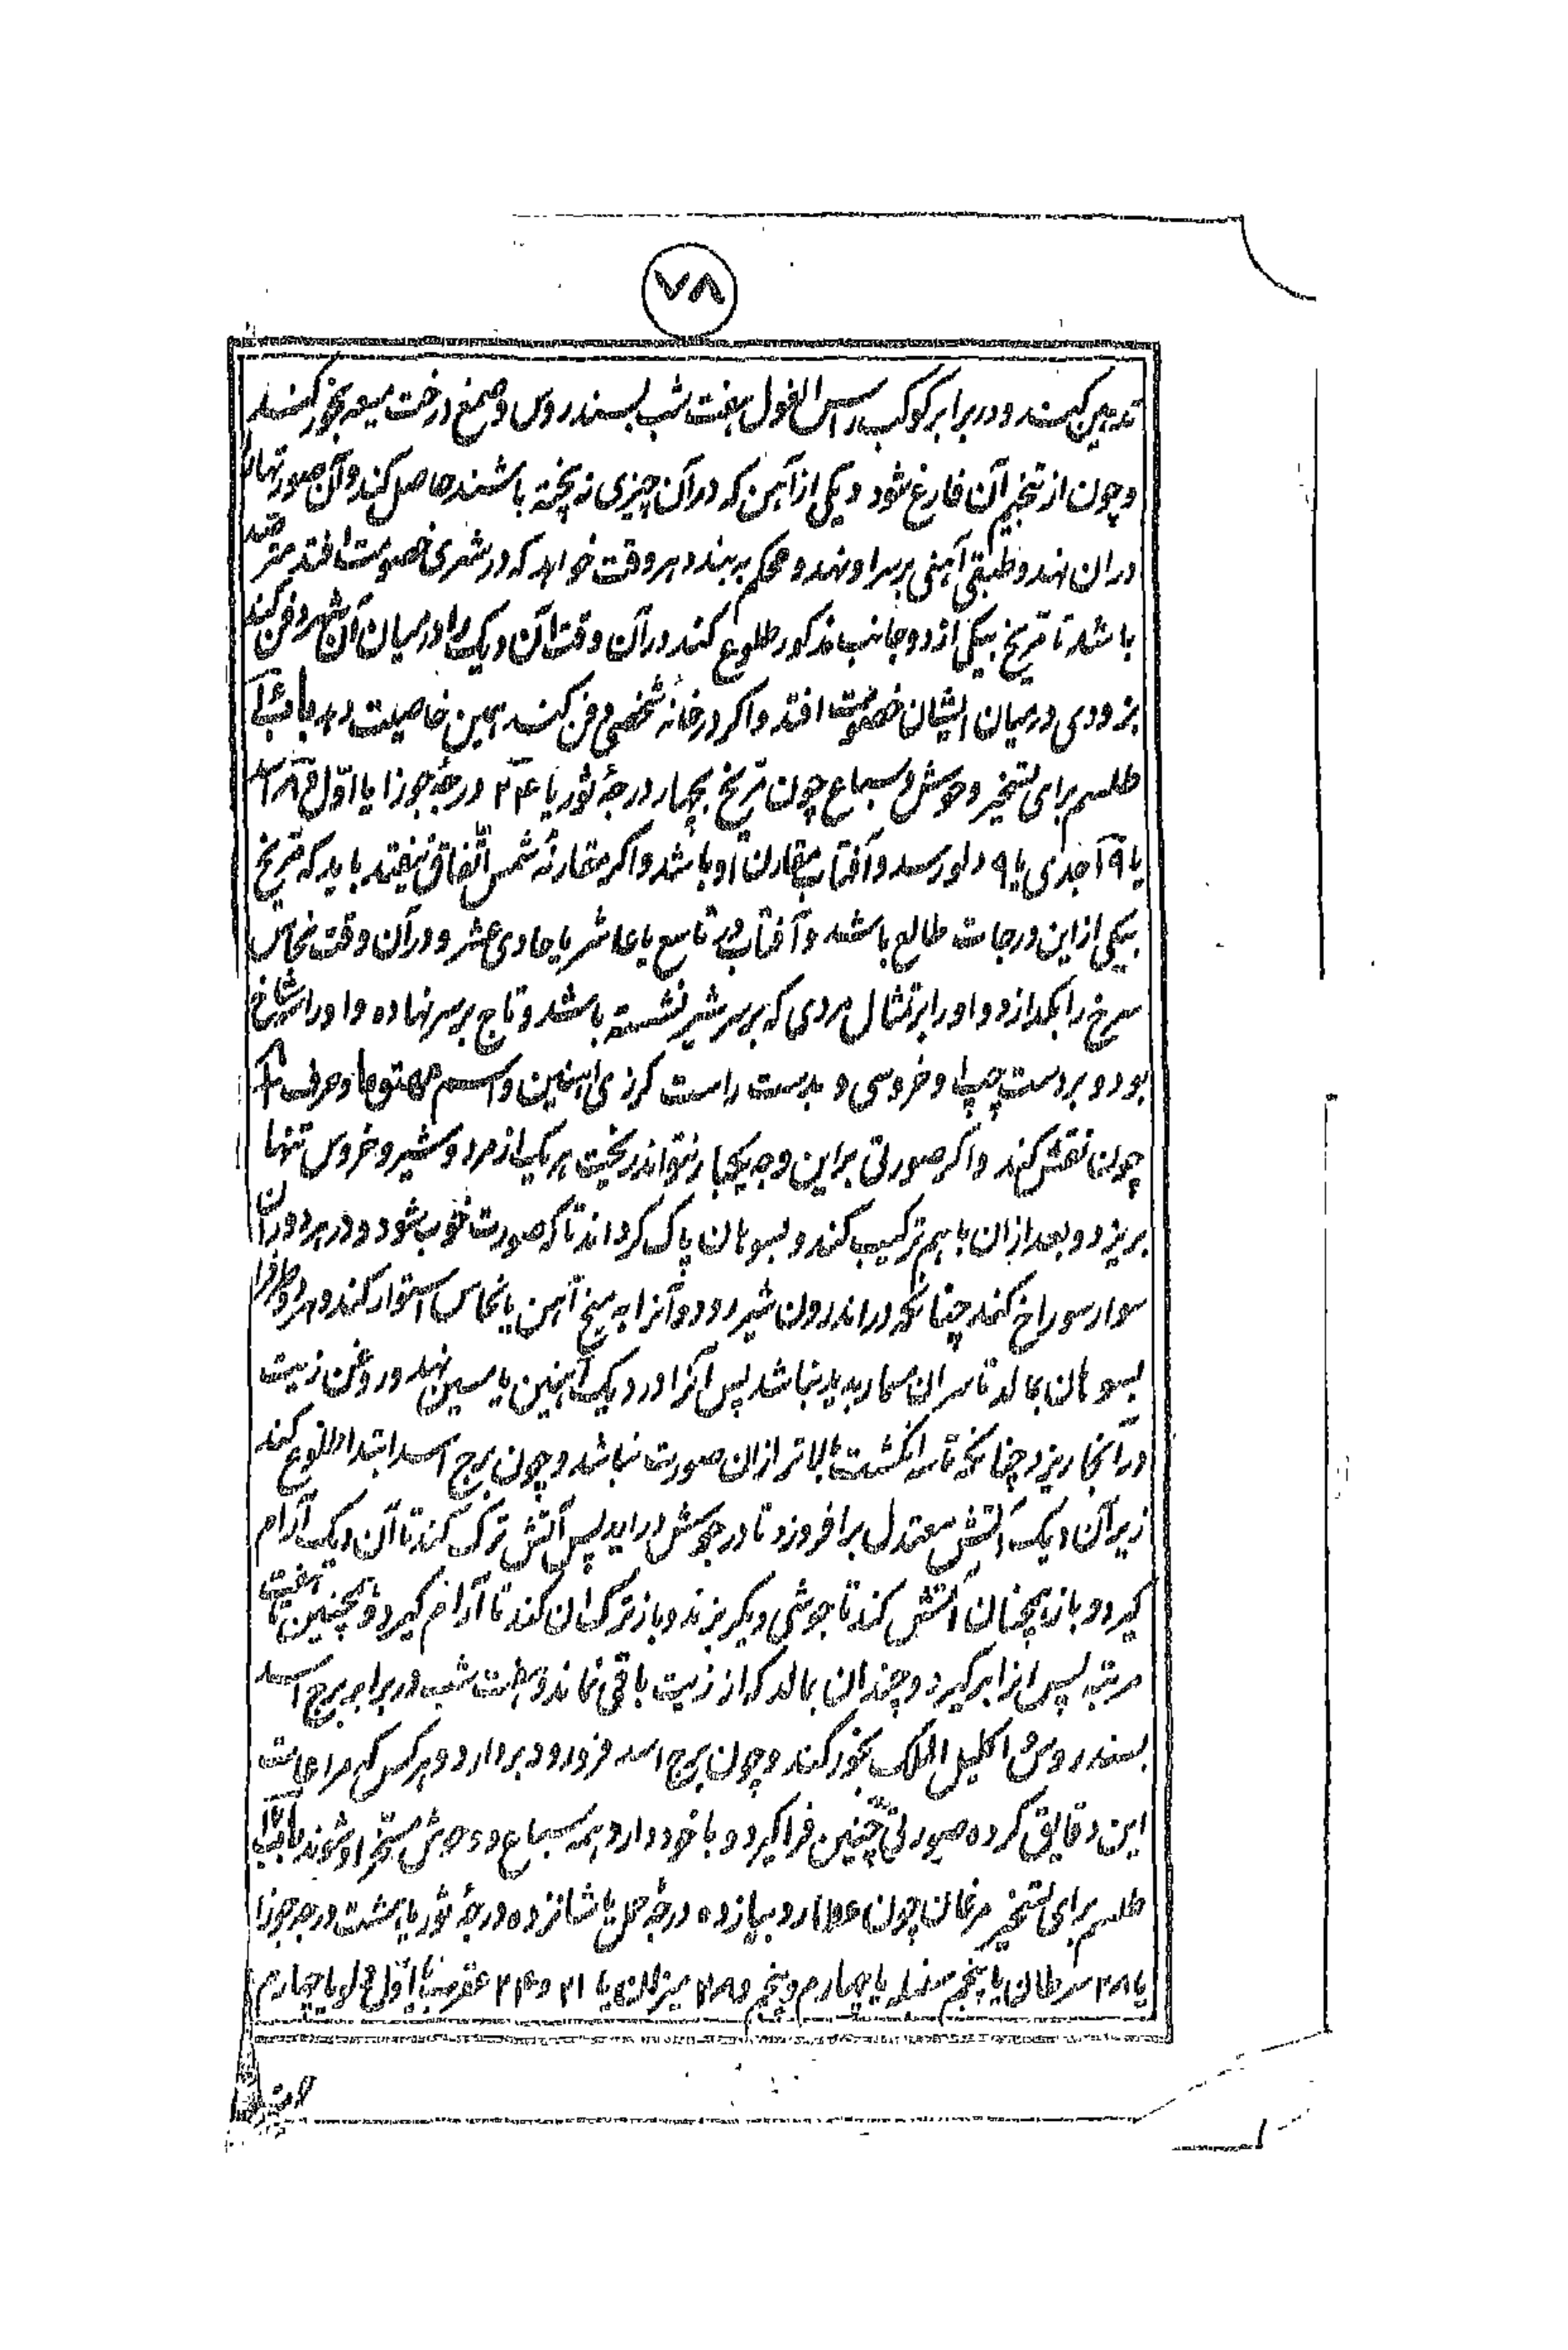 ۷۸
تدهین کنند و در برابر کوکب راس الغول هفت شب بسندروس و صمغ درخت میعه بخور کنند
و چون از تبخیر آن فارغ شود دیگی از آهن که در آن چیزی نه پخته باشند حاصل کند و آن صورتها را
دران نهد و طبقی آهنی بر سر او نهد و محکم به بندد هر وقت خواهد که در شهری خصومت افتد مترصد
باشد تا مریخ بیکی از دو جانب مذکور طلوع کند در آن وقت آن دیگ را در میان آن شهر دفن کند
بزودی در میان ایشان خصومت افتد و اگر در خانهٔ شخصی دفن کنند همین خاصیت دهد
طلسم برای تسخیر وحوش و سباع چون مریخ بچهار درجهٔ ثور یا ۲۴ درجهٔ جوزا یا اوّل
یا ۹ جدی یا ۹ دلو رسد و آفتاب مقارن او باشد و اگر مقارنهٔ شمس اتّفاق نیفتد باید که مریخ
بیکی از این درجات طالع باشد و آفتاب در تاسع یا عاشر یا حادی عشر و در آن وقت نحاس
سرخ را بگدازد و او را بر تمثال مردی که بر سر شیر نشسته باشد و تاج بر سر نهاده و او را شاخ
بود و بر دست چپ او خروسی و بدست راست گرزی آهنین و اسم
چون نقش کند و اگر صورتی براین وجه یکبار نتواند ریخت هر یک از مرد و شیر و خروس تنها
بریزد و بعد ازان با هم ترکیب کند و بسوهان پاک گرداند تا که صورت خوب شود و در هر دو ران
سوار سوراخ کند چنانکه در اندرون شیر رود و آنرا به میخ آهن یا نحاس استوار کند و هر دو طرف را
بسوهان بمالد تا سر ان مسمار پدید نباشد پس آنرا در دیگ آهنین یا مسین نهد و روغن زیت
در آنجا ریزد چنانکه تا سه انگشت بالاتر ازان صورت نباشد و چون برج اسد ابتدا طلوع کند
زیر آن دیگ آتش معتدل برافروزد تا در جوش دراید پس آتش ترک کند تا آن دیگ آرام
گیرد و باز همچنان آتش کند تا جوشی دیگر بزند و باز ترک ان کند تا آرام گیرد و همچنین تا هفت
مرتبه پس انرا برگیرد و چندان بمالد که از زیت باقی نماند و هفت شب در برابر برج اسد
بسندروس و اکلیل الملک بخور کند و چون برج اسد فرورود بردارد و هر کس که مراعات
این دقایق کرده صورتی چنین فراگیرد و با خود دارد همه سباع و وحوش مسخّر او شوند
طلسم برای تسخیر مرغان چون عطارد بیازده درجهٔ حمل یا شانزده درجهٔ ثور یا بهشت درجه جوزا
یا ۲۸ سرطان یا پنجم سنبله یا چهارم و پنجم و ۲۸ میزان یا ۲۱ و ۲۴ عقرب یا اوّل دلو یا چهارم